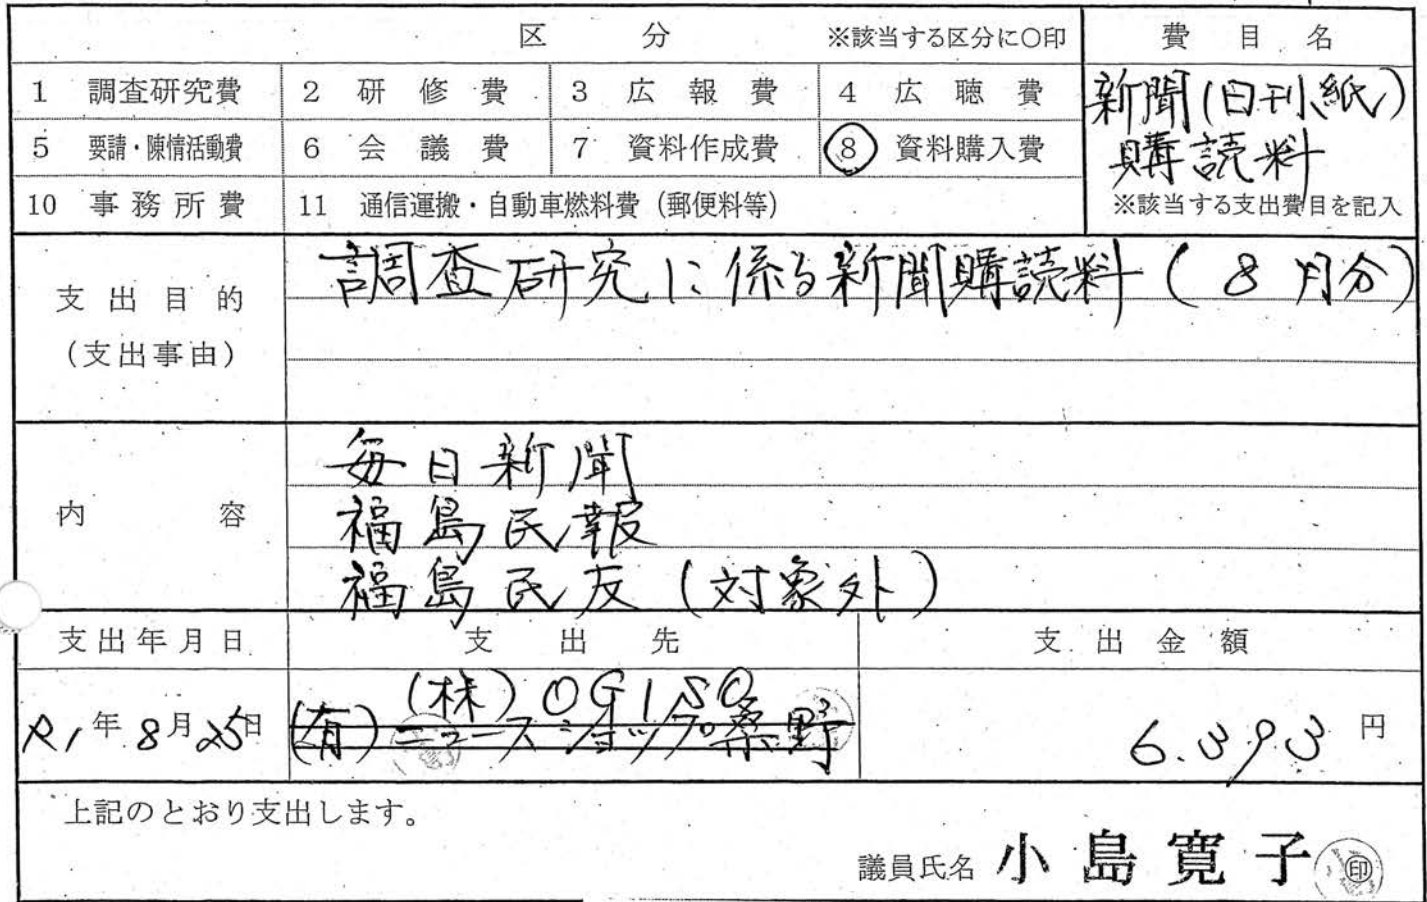 区分 ※該当する区分に○印 費目名
1 調査研究費 2 研修費 3 広報費 4 広聴費 新聞(日刊紙)
5 要請・陳情活動費 6 会議費 7 資料作成費 8 資料購入費 購読料
10 事務所費 11 通信運搬・自動車燃料費(郵便料等) ※該当する支出費目を記入
支出目的 調査研究に係る新聞購読料(8月分)
(支出事由)
毎日新聞
内容 福島民報
福島民友(対象外)
支出年月日 支出先 支出金額
(株)OGISO
R1年8月25日 (有)ニュースショップ桑野 6.393円
上記のとおり支出します。
議員氏名 小島寛子 印